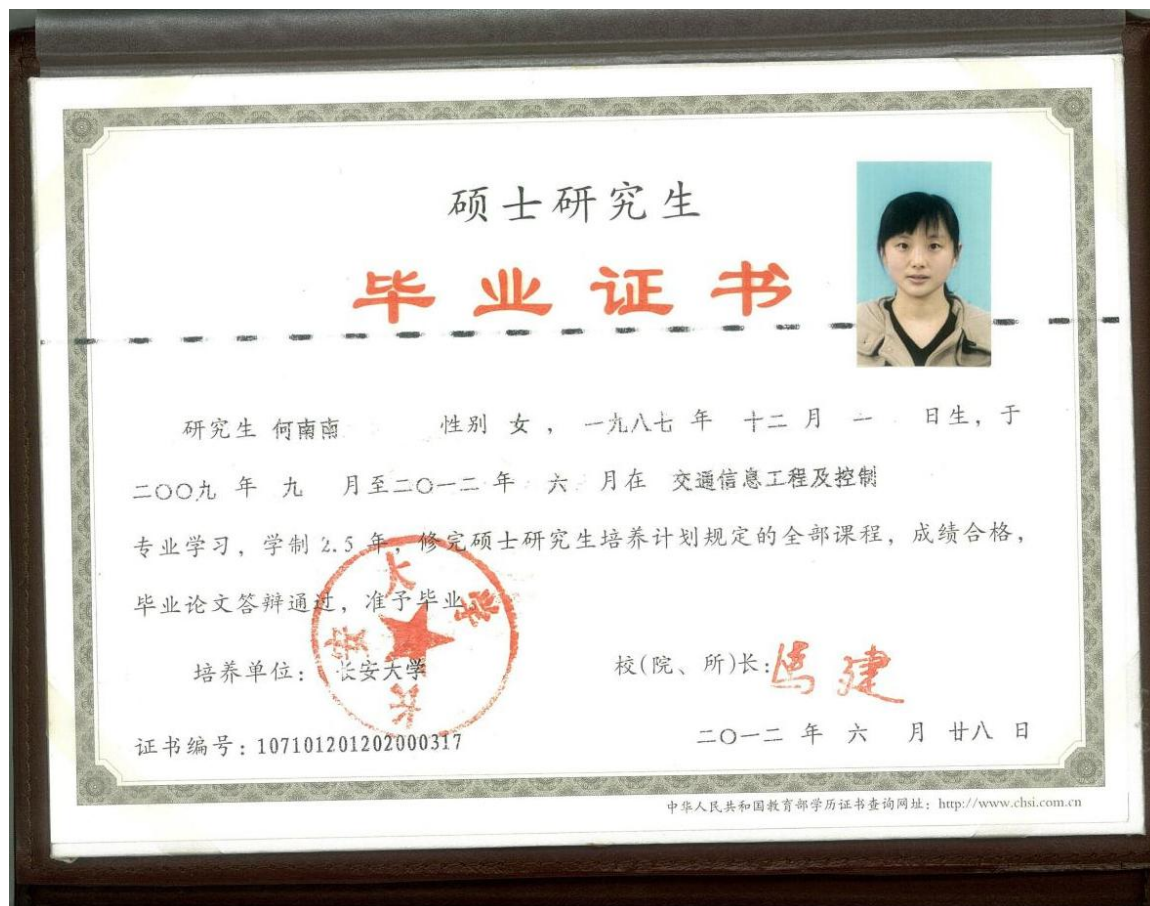 硕士研究生
毕业证书
研究生 何南南 性别 女 ， 一九八七 年 十二 月 一 日生，于
二〇〇九 年 九 月至二〇一二 年 六 月在 交通信息工程及控制
专业学习，学制 2.5 年，修完硕士研究生培养计划规定的全部课程，成绩合格，
毕业论文答辩通过，准予毕业。
培养单位： 长安大学
校(院、所)长: 马建
长安大学
证书编号: 107101201202000317
二〇一二 年 六 月 廿八 日
中华人民共和国教育部学历证书查询网址：http://www.chsi.com.cn